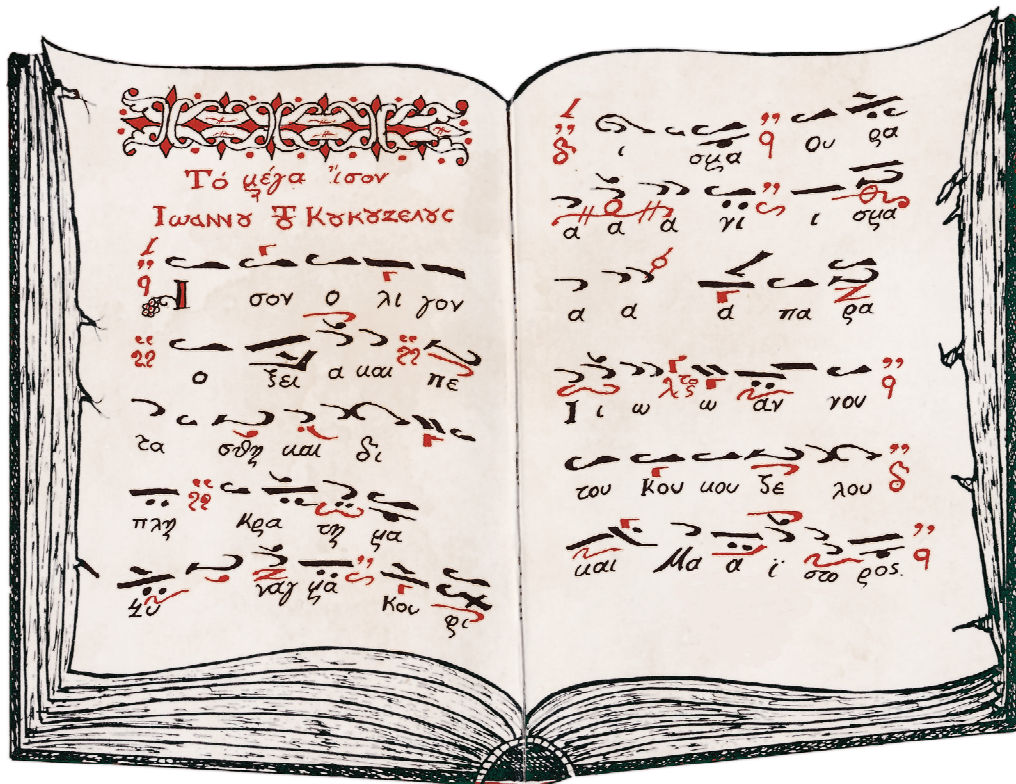 Τό μέγα ἴσον
Ιωαννου του Κουκουζελους
Ι σον ο λι γον
ο ξει α και πε
τα σθη και δι
πλη κρα τη μα
ψυ ναγ μα κου φι
ι σμα ου ρα
α α α νι ι σμα
α α α πα ρα
Ι ι ω ω αν νου
του Κου κου ζε λου
και Μα α ϊ στο ρος.